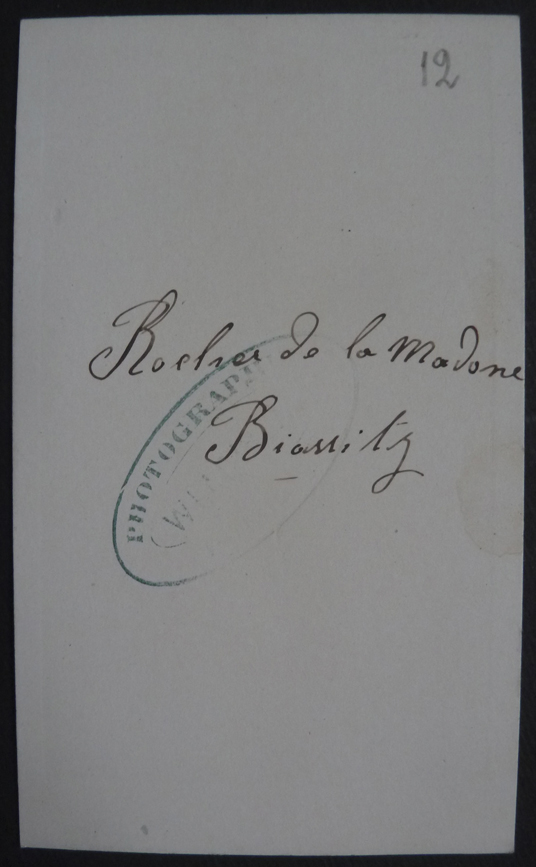 12
Rocher de la Madone
Biarritz
PHOTOGRAPHIE